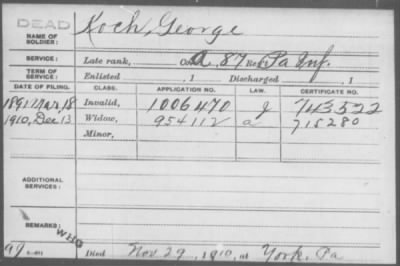 DEAD
NAME OF SOLDIER: Koch, George
SERVICE: Late rank, Co. A, 87 Reg't Pa Inf.
TERM OF SERVICE: Enlisted , 1 Discharged , 1
DATE OF FILING. CLASS. APPLICATION NO. LAW. CERTIFICATE NO.
1891 Mar, 18 Invalid, 1006470 g 743522
1910, Dec 13 Widow, 954112 a 715280
Minor,
ADDITIONAL SERVICES:
REMARKS: WHO
Died Nov 29, 1910, at York, Pa